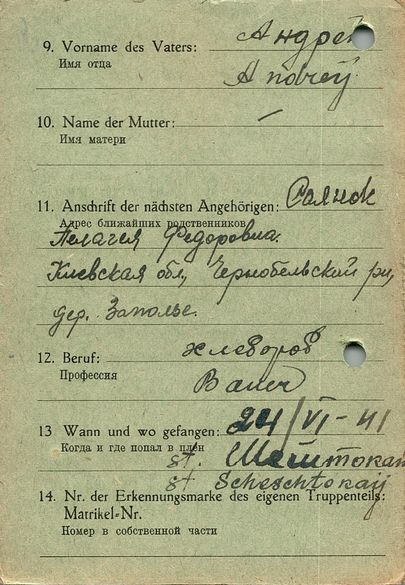 9. Vorname des Vaters: Андрей
Имя отца
Andrej
10. Name der Mutter: —
Имя матери
11. Anschrift der nächsten Angehörigen: Саянок
Адрес ближайших родственников
Пелагея Федоровна.
Киевская обл, Чернобельский рн,
дер. Заполье.
12. Beruf: хлебороб
Профессия
Bauer
13 Wann und wo gefangen: 24/VI-41
Когда и где попал в плен
st. Шештокай
st Scheschtokaj
14. Nr. der Erkennungsmarke des eigenen Truppenteils:
Matrikel-Nr.
Номер в собственной части